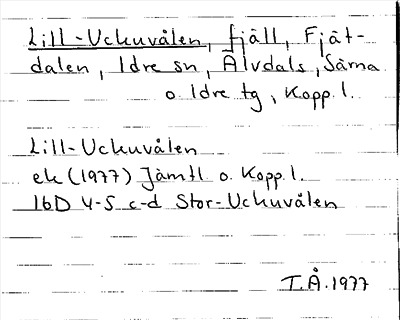 Lill-Uckuvålen, fjäll, Fjät-
dalen, Idre sn, Älvdals, Särna
o. Idre tg, Kopp. l.
Lill-Uckuvålen
ek (1977) Jämtl o. Kopp. l.
16D 4-5 c-d Stor-Uckuvålen
T.Å. 1977